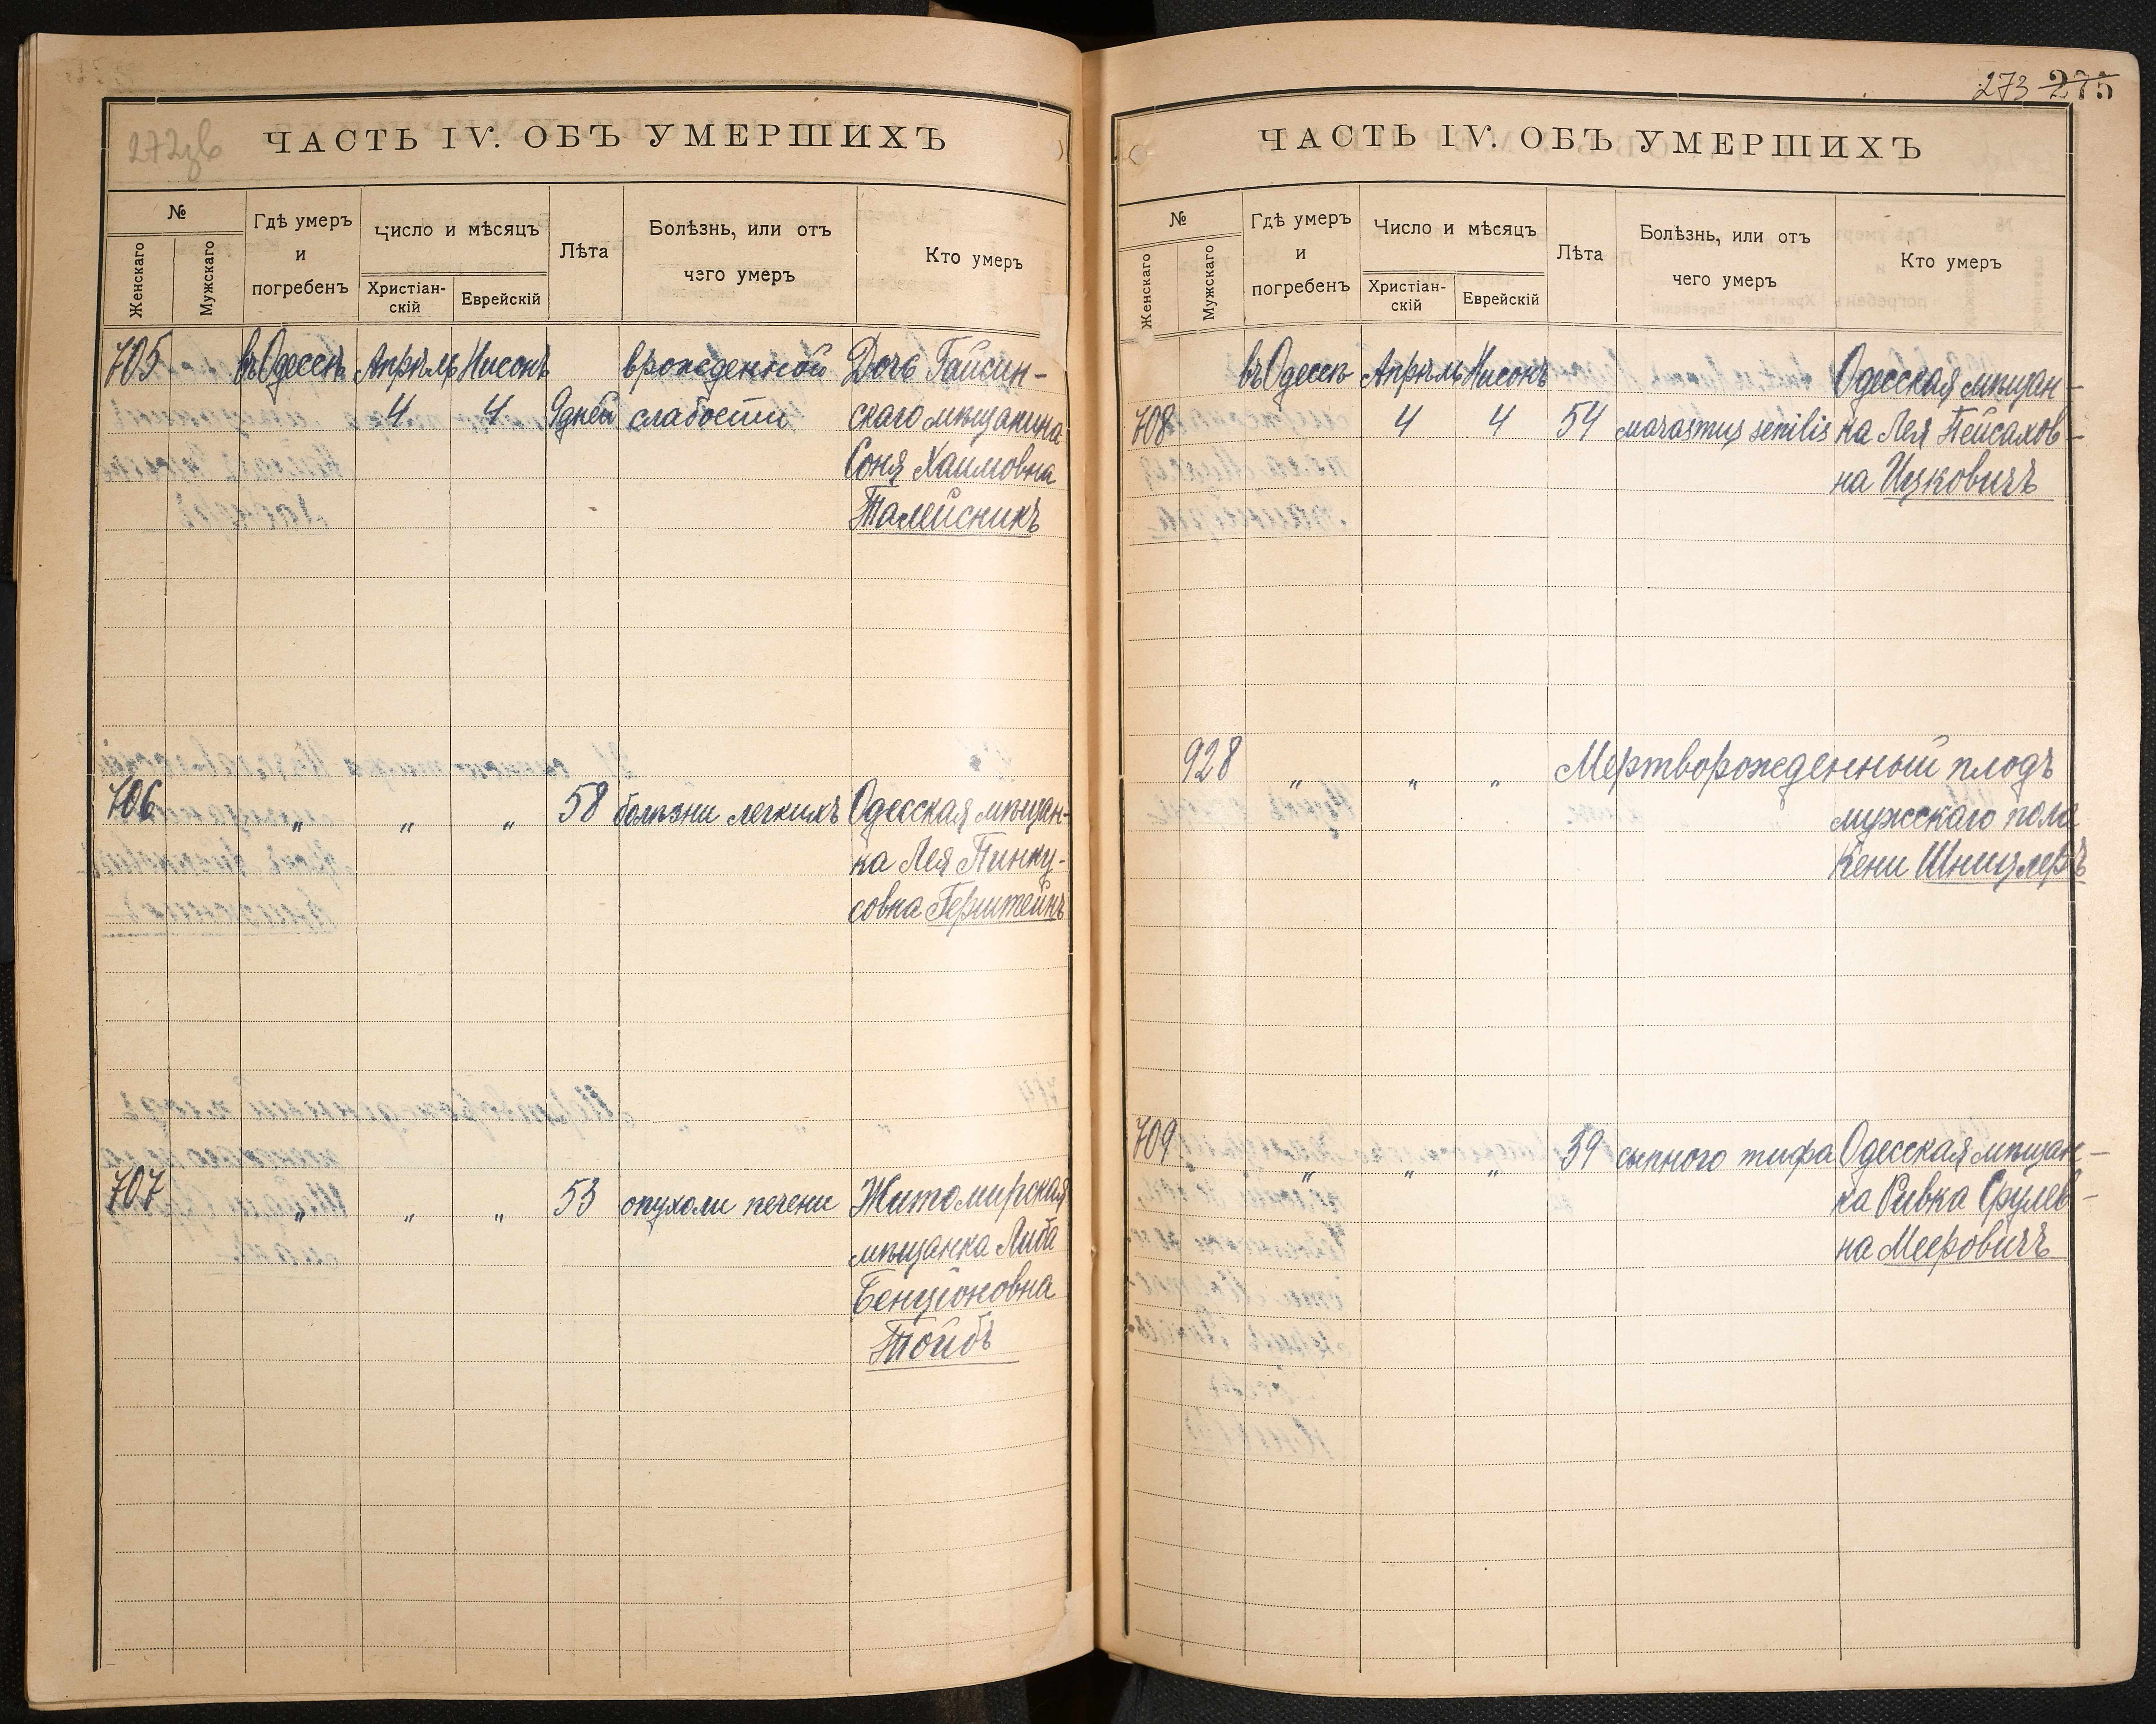 272зв
ЧАСТЬ IV. ОБЪ УМЕРШИХЪ
№
Женскаго
Мужскаго
Гдѣ умеръ
и
погребенъ
Число и мѣсяцъ
Христіан-
скій
Еврейскій
Лѣта
Болѣзнь, или отъ
чего умеръ
Кто умеръ
705 въ Одессѣ Апрѣль Нисонъ врожденной Дочь Гайсин-
4 4 9 дней слабости скаго мѣщанина
Соня Хаимовна
Талейсникъ
706 „ „ „ 58 болѣзни легкихъ Одесская мѣщан-
ка Лея Пинку-
совна Герштейнъ
707 „ „ „ 53 опухоли печени Житомирская
мѣщанка Либа
Бенціоновна
Тойбъ
273 275
ЧАСТЬ IV. ОБЪ УМЕРШИХЪ
№
Женскаго
Мужскаго
Гдѣ умеръ
и
погребенъ
Число и мѣсяцъ
Христіан-
скій
Еврейскій
Лѣта
Болѣзнь, или отъ
чего умеръ
Кто умеръ
въ Одессѣ Апрѣль Нисонъ Одесская мѣщан-
708 4 4 54 marasmus senilis на Лея Пейсахов-
на Ицковичъ
928 „ „ „ Мертворожденный плодъ
мужскаго пола
Кени Шницлеръ
709 „ „ „ 39 сыпного тифа Одесская мѣщан-
ка Ривка Срулев-
на Мееровичъ